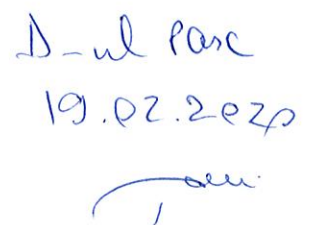 D-ul Pasc
19.02.2020